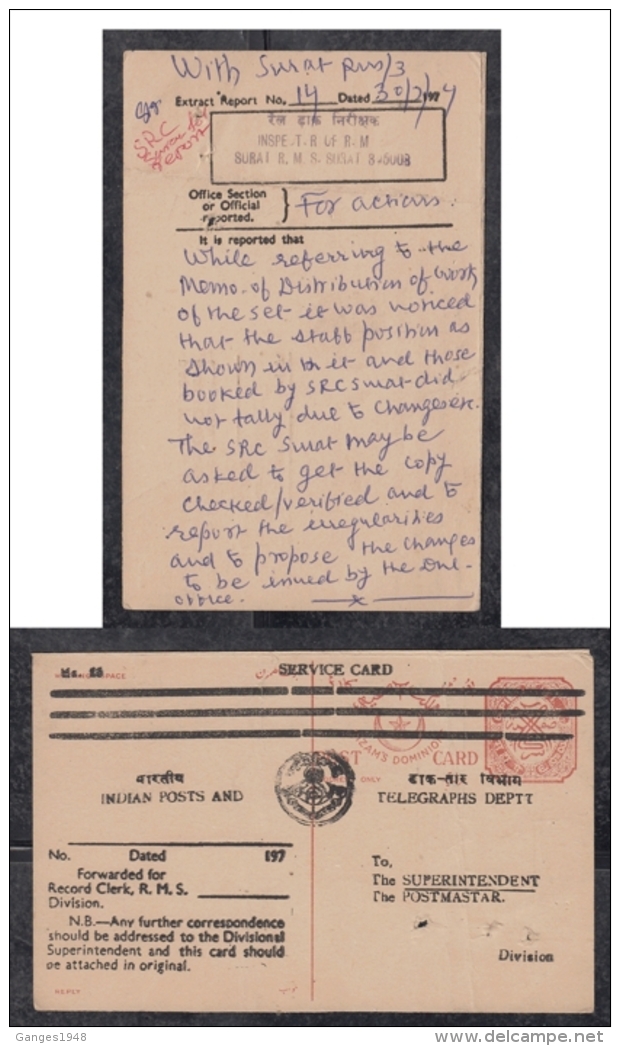 With Surat RMS/3
Extract Report No. 14 Dated 30/7/1974
SRC
report
रेल डाक निरीक्षक
INSPE.T.R OF R.M
SURAT R.M.S. SURAT
Office Section
or Official
reported.
} For actions.
It is reported that
While referring to the
Memo. of Distribution of work
of the set it was noticed
that the staff position as
shown in it and those
booked by SRC Surat did
not tally due to changes etc.
The SRC Surat may be
asked to get the copy
checked/verified and to
report the irregularities
and to propose the changes
to be issued by the
office.
SERVICE CARD
SPACE
ZAM'S DOMINION
POST CARD
ONLY
भारतीय
डाक-तार विभाग
INDIAN POSTS AND
TELEGRAPHS DEPTT
No. Dated 197
Forwarded for
Record Clerk, R. M. S.
Division.
N.B.—Any further correspondence
should be addressed to the Divisional
Superintendent and this card should
be attached in original.
To,
The SUPERINTENDENT
The POSTMASTAR.
Division
REPLY
Ganges1948
www.delcampe.net